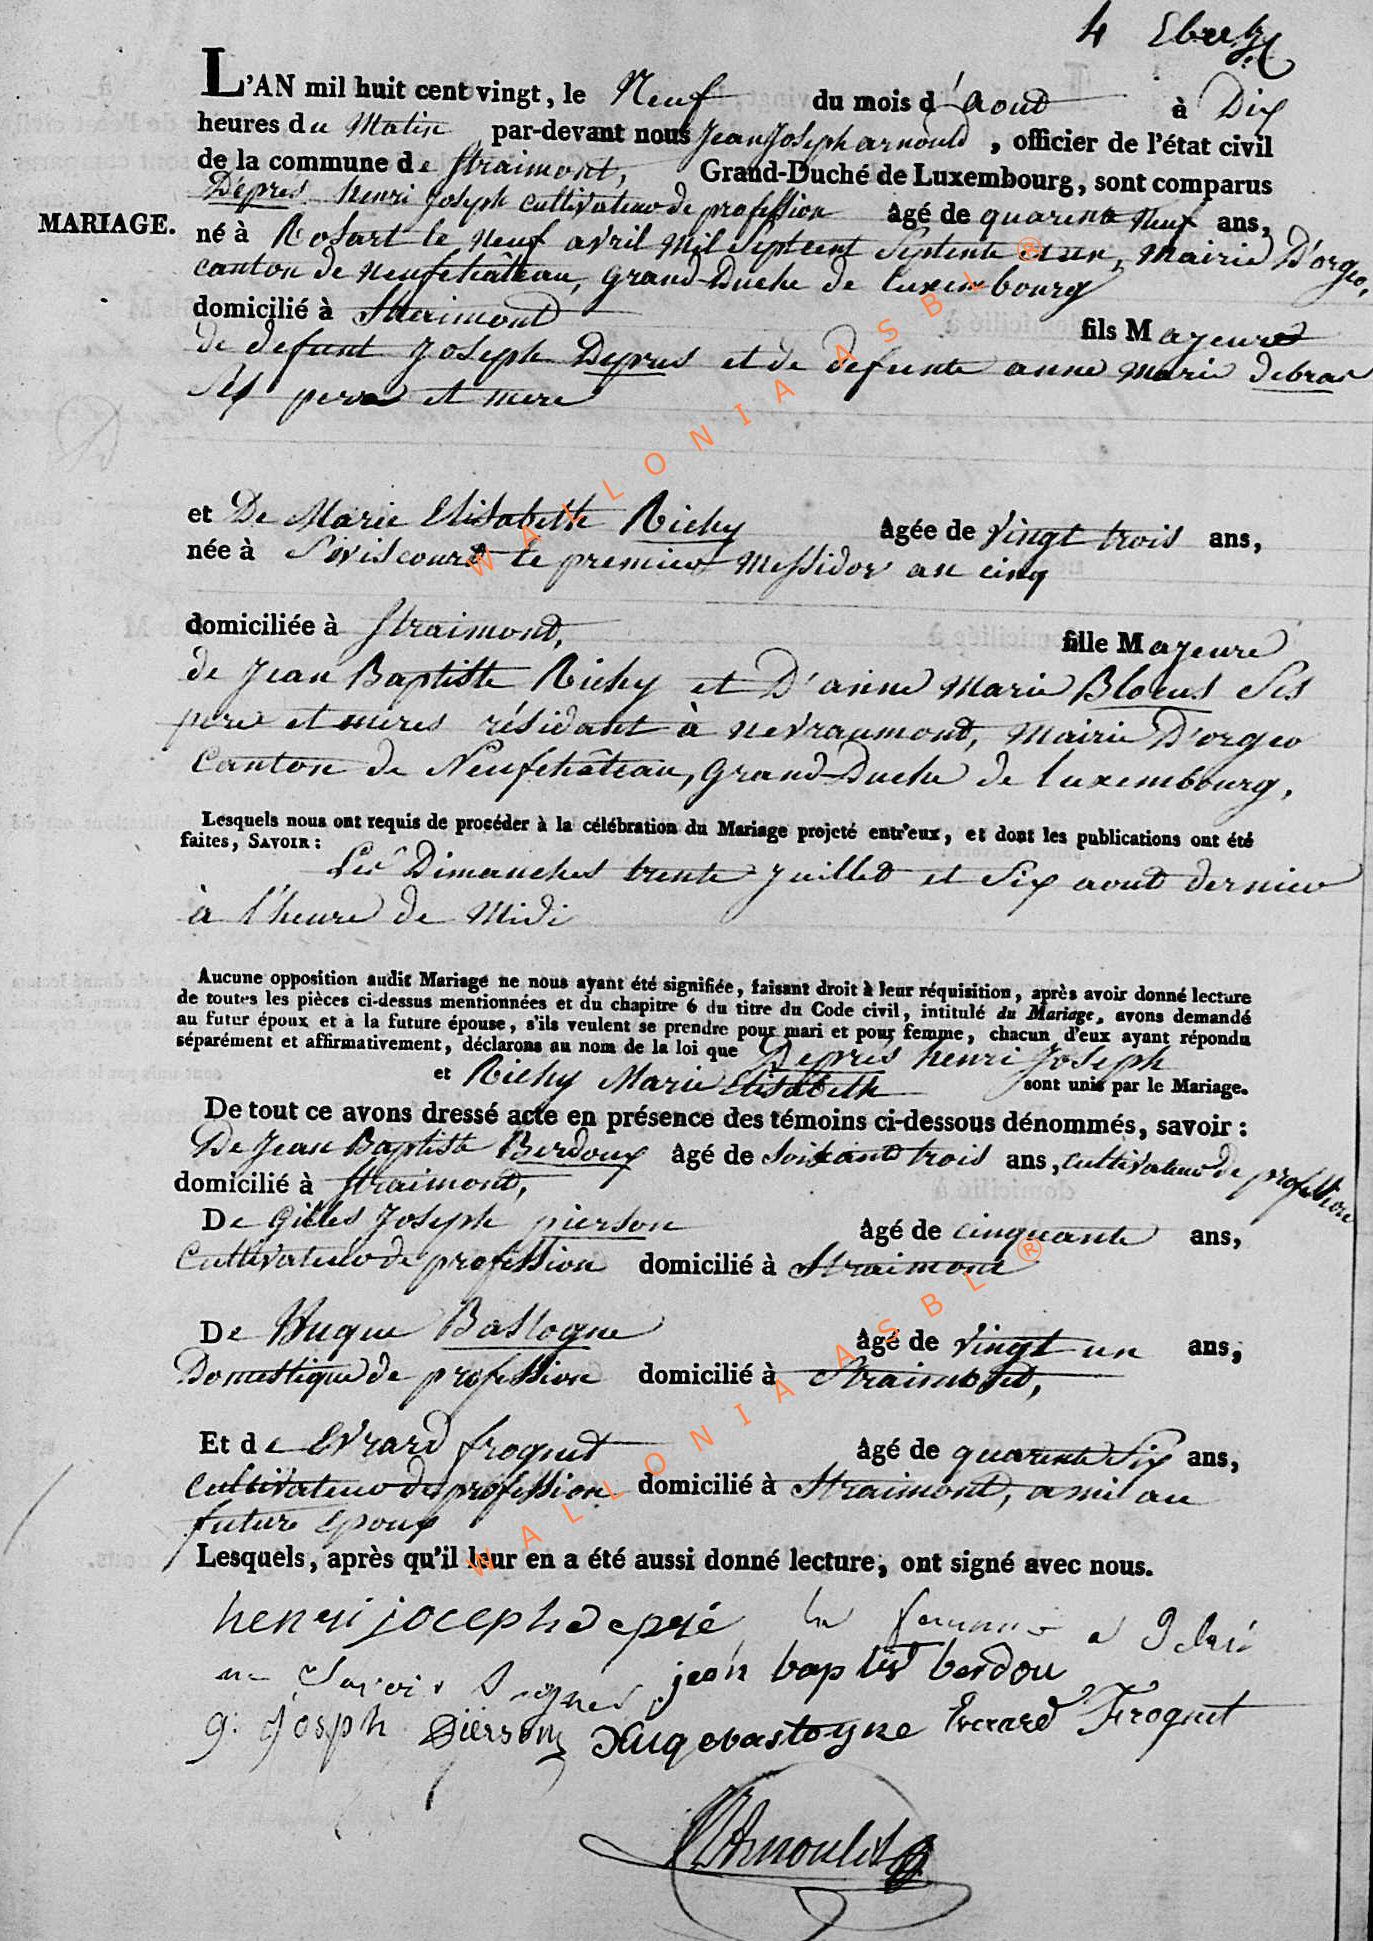 4
L'AN mil huit cent vingt, le Neuf du mois d'Aout à Dix
heures du Matin par-devant nous Jean Joseph arnould, officier de l'état civil
de la commune de Straimont, Grand-Duché de Luxembourg, sont comparus
Deprés henri Joseph cultivateur de profession âgé de quarente Neuf ans,
MARIAGE.
né à Rosart le Neuf avril Mil Septcent Septente et un, Mairie D'orgeo,
canton de Neufchâteau, grand-Duché de luxembourg
domicilié à Straimont fils Majeure
de defunt Joseph Deprés et de defunte anne Marie debras
Ses pere et mere
et De Marie Elisabeth Richy âgée de Vingt trois ans,
née à Sviscourt le premier Messidor an cinq
domiciliée à Straimont, fille Majeure
de Jean Baptiste Richy et D'anne Marie Blocus Ses
pere et meres résidant à Nevraumont, Mairie D'orgeo
Canton de Neufchâteau, Grand-Duché de luxembourg,
Lesquels nous ont requis de procéder à la célébration du Mariage projeté entr'eux, et dont les publications ont été
faites, SAVOIR :
Les Dimanches trente Juillet et Six aout dernier
à l'heure de Midi
Aucune opposition audit Mariage ne nous ayant été signifiée, faisant droit à leur réquisition, après avoir donné lecture
de toutes les pièces ci-dessus mentionnées et du chapitre 6 du titre du Code civil, intitulé du Mariage, avons demandé
au futur époux et à la future épouse, s'ils veulent se prendre pour mari et pour femme, chacun d'eux ayant répondu
séparément et affirmativement, déclarons au nom de la loi que Deprés henri Joseph
et Richy Marie Elisabeth sont unis par le Mariage.
De tout ce avons dressé acte en présence des témoins ci-dessous dénommés, savoir :
De Jean Baptiste Berdoux âgé de Soixante trois ans, cultivateur de profession
domicilié à Straimont,
De Gilles Joseph pierson âgé de cinquante ans,
Cultivateur de profession domicilié à Straimont
De Hugue Bastogne âgé de Vingt un ans,
Domestique de profession domicilié à Straimont,
Et de Evrard froguet âgé de quarente Six ans,
Cultivateur de profession domicilié à Straimont, ami au
future Epoux
Lesquels, après qu'il leur en a été aussi donné lecture, ont signé avec nous.
henri joceph depré la femme a
ne Savoir Signer jean baptist berdou
g: Josph Pierson Hugebastogne Everard Froguet
Arnould
WALLONIA ASBL ®
WALLONIA ASBL ®